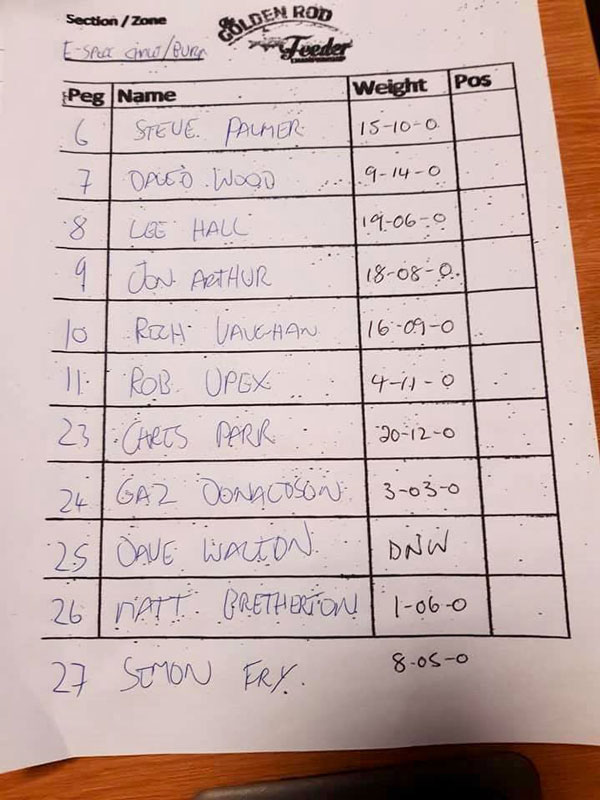 Section / Zone
GOLDEN ROD
Feeder
CHAMPIONSHIP
Peg Name Weight Pos
6 STEVE PALMER 15-10-0
7 DAVID WOOD 9-14-0
8 LEE HALL 19-06-0
9 JON ARTHUR 18-08-0
10 RICH VAUGHAN 16-09-0
11 ROB UPEX 4-11-0
23 CHRIS PARR 20-12-0
24 GAZ DONALDSON 3-03-0
25 DAVE WALTON DNW
26 MATT BRETHERTON 1-06-0
27 SIMON FRY. 8-05-0